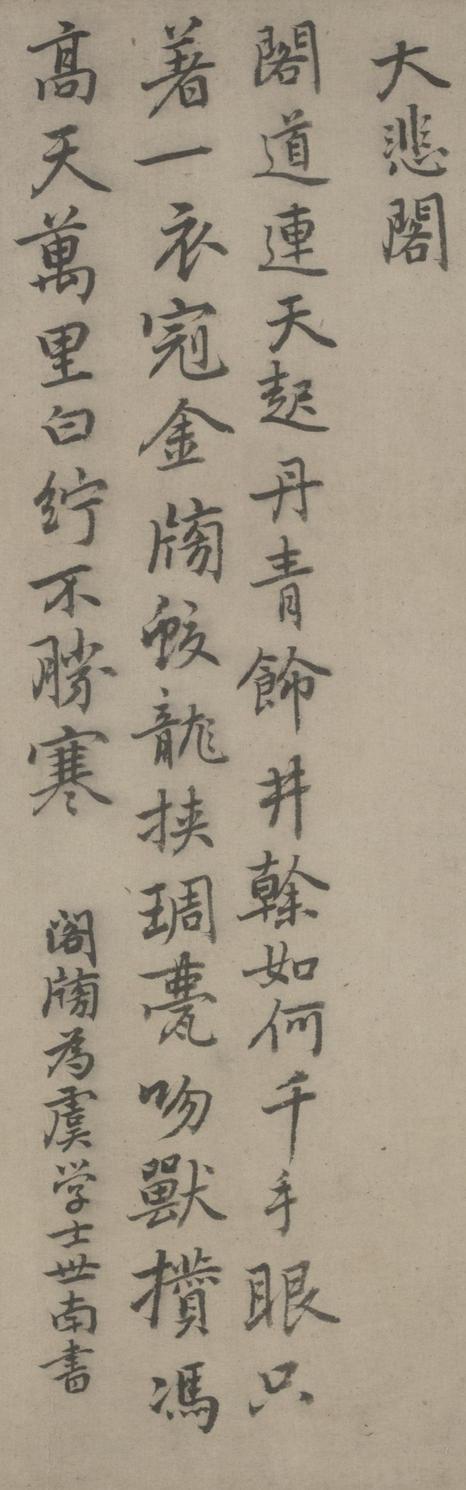 大悲閣
閣道連天起丹青飾井榦如何千手眼只
著一衣冠金牓蛟龍挾琱甍吻獸攢馮
高天萬里白紵不勝寒 閣牓為虞学士世南書